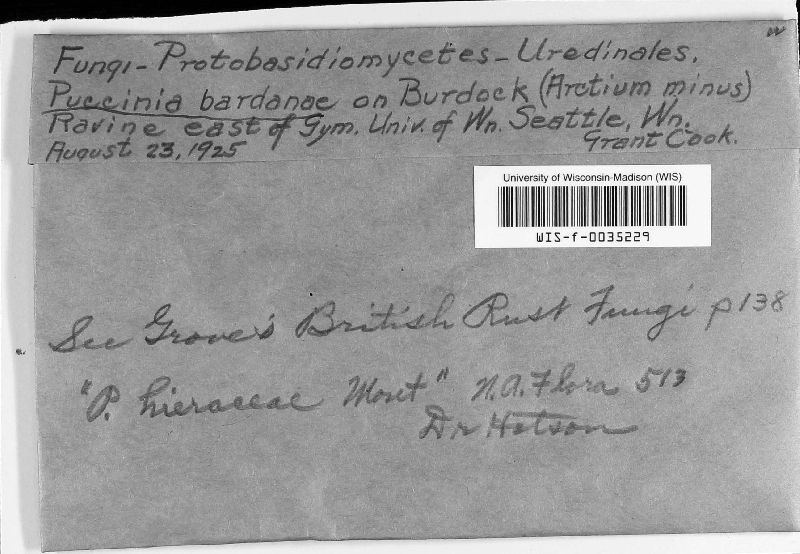 W
Fungi - Protobasidiomycetes - Uredinales.
Puccinia bardanae on Burdock (Arctium minus)
Ravine east of Gym. Univ. of Wn. Seattle, Wn.
August 23, 1925 Grant Cook.
University of Wisconsin-Madison (WIS)
WIS-f-0035229
See Grove's British Rust Fungi p 138
"P. hieraceae Mout" N.A. Flora 513
Dr Hotson